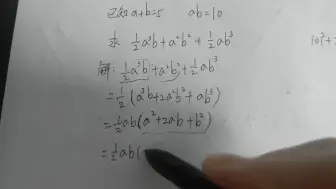 已知 a+b=5 ab=10
求 ½a³b+a²b²+½ab³
解: ½a³b+a²b²+½ab³
=½(a³b+2a²b²+ab³)
=½ab(a²+2ab+b²)
=½ab(